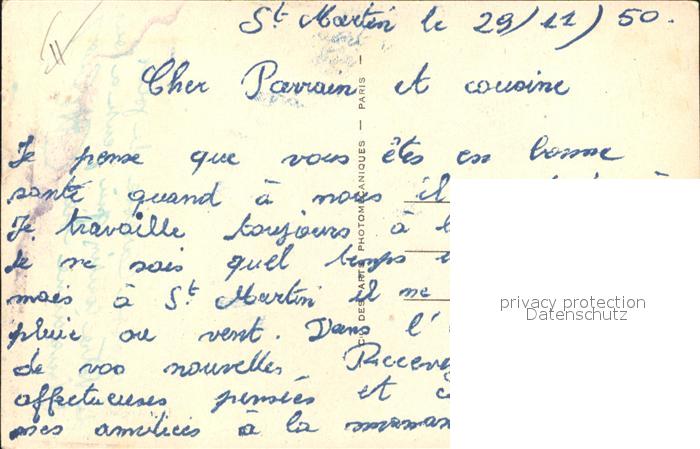 St Martin le 29/11/50.
Cher Parrain et cousine
Je pense que vous êtes en bonne
santé quand à nous il
Je travaille toujours à
Je ne sais quel temps
mais à St Martin il ne
pluie ou vent. Dans l'
de vos nouvelles Recevez
affectueuses pensées et
mes amitiés à la maman
PHOTOMÉCANIQUES — PARIS —
privacy protection
Datenschutz